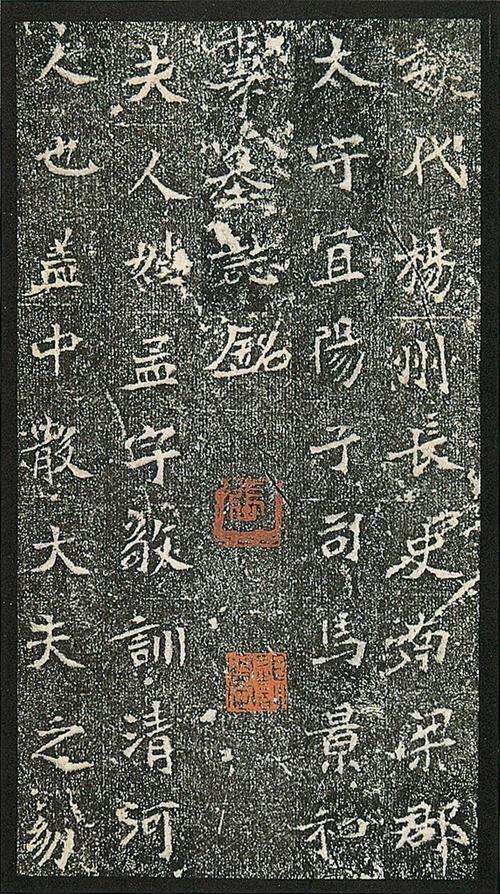 魏代楊州長史南梁郡
太守宜陽子司馬景和
妻墓誌銘
夫人姓孟字敬訓清河
人也蓋中散大夫之幼